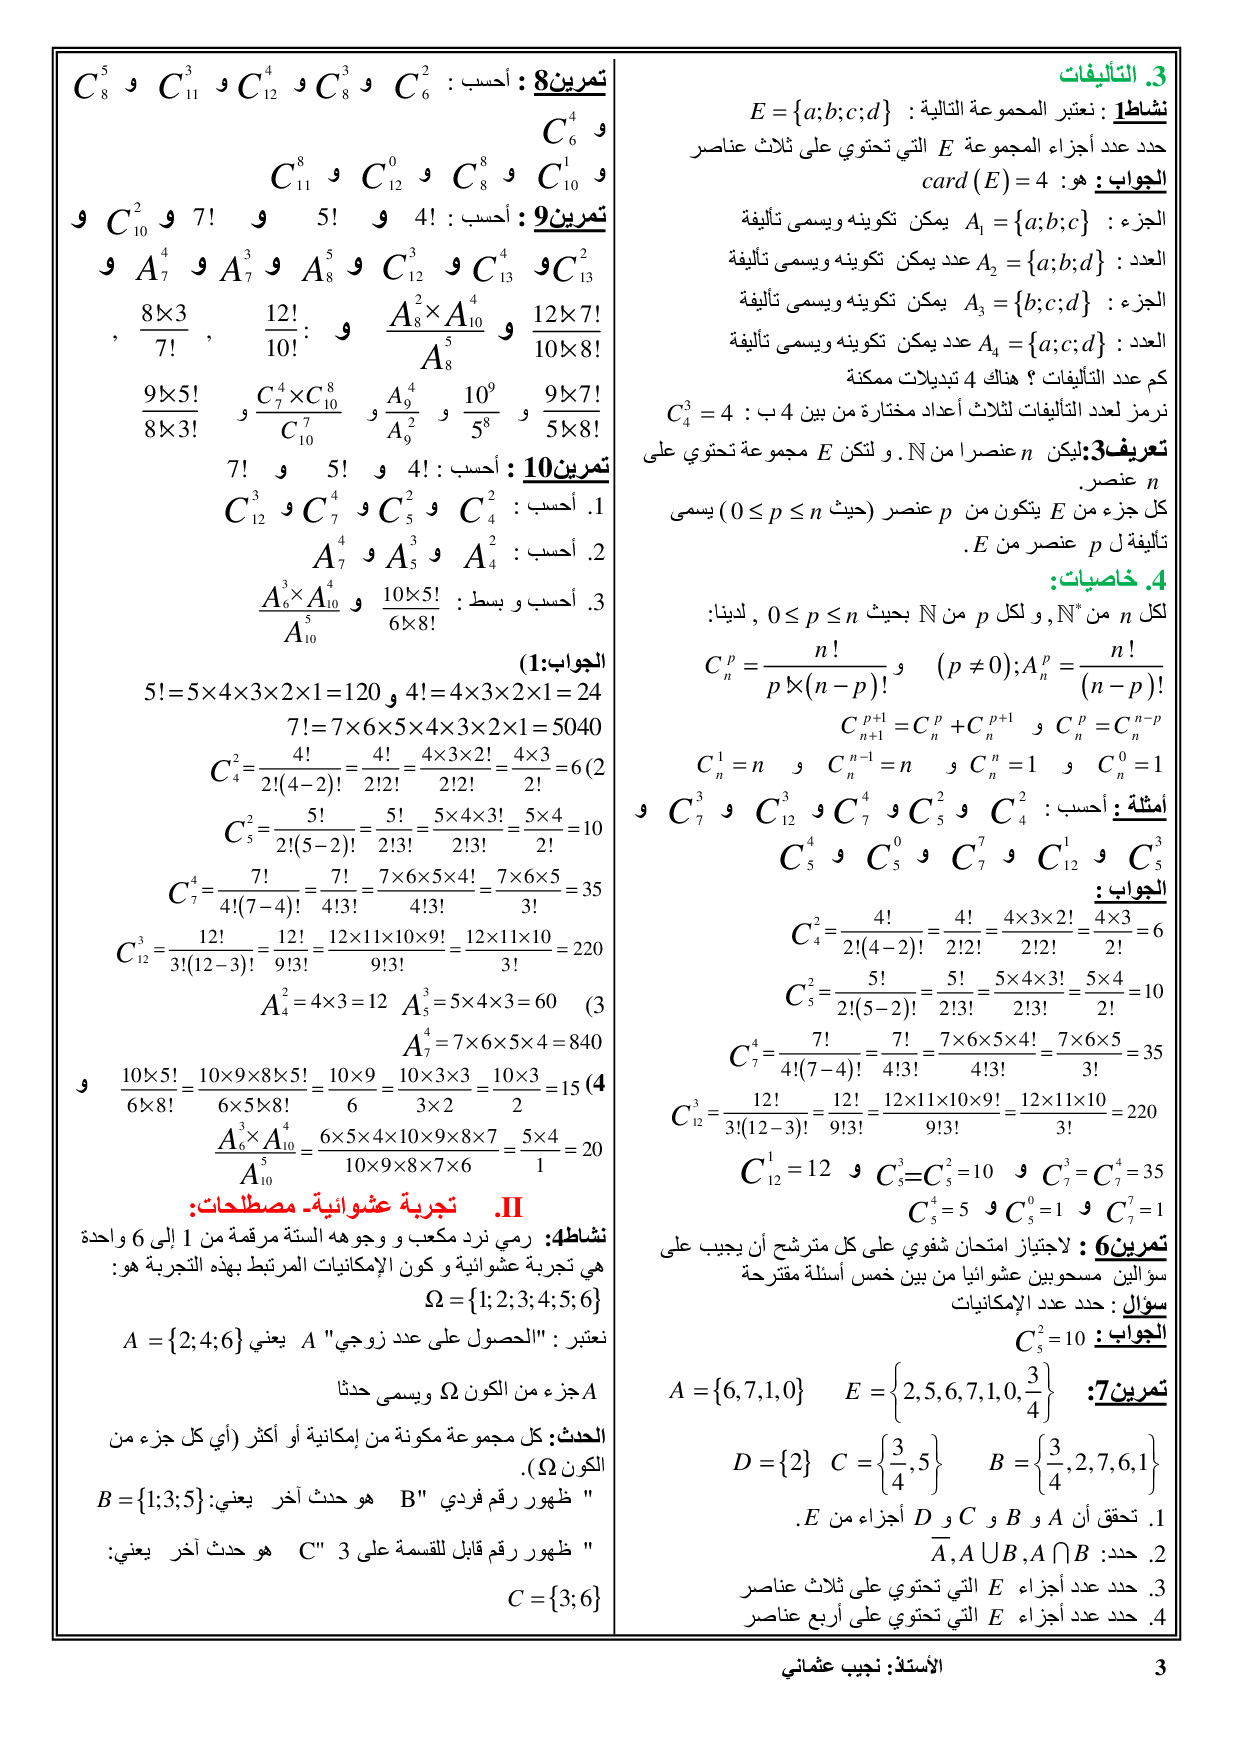 3. التأليفات
نشاط1 : نعتبر المحموعة التالية : E = {a;b;c;d}
حدد عدد أجزاء المجموعة E التي تحتوي على ثلاث عناصر
الجواب : هو: card(E) = 4
الجزء : A₁ = {a;b;c} يمكن تكوينه ويسمى تأليفة
العدد : A₂ = {a;b;d} عدد يمكن تكوينه ويسمى تأليفة
الجزء : A₃ = {b;c;d} يمكن تكوينه ويسمى تأليفة
العدد : A₄ = {a;c;d} عدد يمكن تكوينه ويسمى تأليفة
كم عدد التأليفات ؟ هناك 4 تبديلات ممكنة
نرمز لعدد التأليفات لثلاث أعداد مختارة من بين 4 ب : C_4^3 = 4
تعريف3: ليكن n عنصرا من ℕ . و لتكن E مجموعة تحتوي على
n عنصر.
كل جزء من E يتكون من p عنصر (حيث 0 ≤ p ≤ n) يسمى
تأليفة ل p عنصر من E .
4. خاصيات:
لكل n من ℕ* , و لكل p من ℕ بحيث 0 ≤ p ≤ n , لدينا:
(p ≠ 0); A_n^p = n!/(n−p)! و C_n^p = n!/(p!×(n−p)!)
C_n^p = C_n^{n−p} و C_{n+1}^{p+1} = C_n^p + C_n^{p+1}
C_n^0 = 1 و C_n^n = 1 و C_n^{n−1} = n و C_n^1 = n
أمثلة : أحسب : C_4^2 و C_5^2 و C_7^4 و C_12^3 و C_7^3 و
C_5^3 و C_12^1 و C_7^7 و C_5^0 و C_5^4
الجواب :
C_4^2 = 4!/(2!(4−2)!) = 4!/(2!2!) = (4×3×2!)/(2!2!) = (4×3)/2! = 6
C_5^2 = 5!/(2!(5−2)!) = 5!/(2!3!) = (5×4×3!)/(2!3!) = (5×4)/2! = 10
C_7^4 = 7!/(4!(7−4)!) = 7!/(4!3!) = (7×6×5×4!)/(4!3!) = (7×6×5)/3! = 35
C_12^3 = 12!/(3!(12−3)!) = 12!/(9!3!) = (12×11×10×9!)/(9!3!) = (12×11×10)/3! = 220
C_7^3 = C_7^4 = 35 و C_5^3 = C_5^2 = 10 و C_12^1 = 12
C_7^7 = 1 و C_5^0 = 1 و C_5^4 = 5
تمرين6 : لاجتياز امتحان شفوي على كل مترشح أن يجيب على
سؤالين مسحوبين عشوائيا من بين خمس أسئلة مقترحة
سؤال : حدد عدد الإمكانيات
الجواب : C_5^2 = 10
تمرين7: E = {2,5,6,7,1,0,3/4} A = {6,7,1,0}
B = {3/4,2,7,6,1} C = {3/4,5} D = {2}
1. تحقق أن A و B و C و D أجزاء من E .
2. حدد: A̅ , A ∪ B , A ∩ B
3. حدد عدد أجزاء E التي تحتوي على ثلاث عناصر
4. حدد عدد أجزاء E التي تحتوي على أربع عناصر
تمرين8 : أحسب : C_6^2 و C_8^3 و C_12^4 و C_11^3 و C_8^5
و C_6^4
و C_10^1 و C_8^8 و C_12^0 و C_11^8
تمرين9 : أحسب : 4! و 5! و 7! و C_10^2 و
C_13^2 و C_13^4 و C_12^3 و A_8^5 و A_7^3 و A_7^4 و
(12!×7!)/(10!×8!) و (A_8^2×A_10^4)/A_8^5 و : 12!/10! , (8!×3)/7! ,
(9!×7!)/(5!×8!) و 10^9/5^8 و A_9^4/A_9^2 و (C_7^4×C_10^8)/C_10^7 و (9!×5!)/(8!×3!)
تمرين10 : أحسب : 4! و 5! و 7!
1. أحسب : C_4^2 و C_5^2 و C_7^4 و C_12^3
2. أحسب : A_4^2 و A_5^3 و A_7^4
3. أحسب و بسط : (10!×5!)/(6!×8!) و (A_6^3×A_10^4)/A_10^5
الجواب:1)
4! = 4×3×2×1 = 24 و 5! = 5×4×3×2×1 = 120
7! = 7×6×5×4×3×2×1 = 5040
2) C_4^2 = 4!/(2!(4−2)!) = 4!/(2!2!) = (4×3×2!)/(2!2!) = (4×3)/2! = 6
C_5^2 = 5!/(2!(5−2)!) = 5!/(2!3!) = (5×4×3!)/(2!3!) = (5×4)/2! = 10
C_7^4 = 7!/(4!(7−4)!) = 7!/(4!3!) = (7×6×5×4!)/(4!3!) = (7×6×5)/3! = 35
C_12^3 = 12!/(3!(12−3)!) = 12!/(9!3!) = (12×11×10×9!)/(9!3!) = (12×11×10)/3! = 220
3) A_4^2 = 4×3 = 12 A_5^3 = 5×4×3 = 60
A_7^4 = 7×6×5×4 = 840
4) (10!×5!)/(6!×8!) = (10×9×8!×5!)/(6×5!×8!) = (10×9)/6 = (10×3×3)/(3×2) = (10×3)/2 = 15 و
(A_6^3×A_10^4)/A_10^5 = (6×5×4×10×9×8×7)/(10×9×8×7×6) = (5×4)/1 = 20
II. تجربة عشوائية- مصطلحات:
نشاط4: رمي نرد مكعب و وجوهه الستة مرقمة من 1 إلى 6 واحدة
هي تجربة عشوائية و كون الإمكانيات المرتبط بهذه التجربة هو:
Ω = {1;2;3;4;5;6}
نعتبر : "الحصول على عدد زوجي" A يعني A = {2;4;6}
A جزء من الكون Ω ويسمى حدثا
الحدث: كل مجموعة مكونة من إمكانية أو أكثر (أي كل جزء من
الكون Ω).
" ظهور رقم فردي "B هو حدث آخر يعني: B = {1;3;5}
" ظهور رقم قابل للقسمة على 3 "C هو حدث آخر يعني:
C = {3;6}
3 الأستاذ: نجيب عثماني